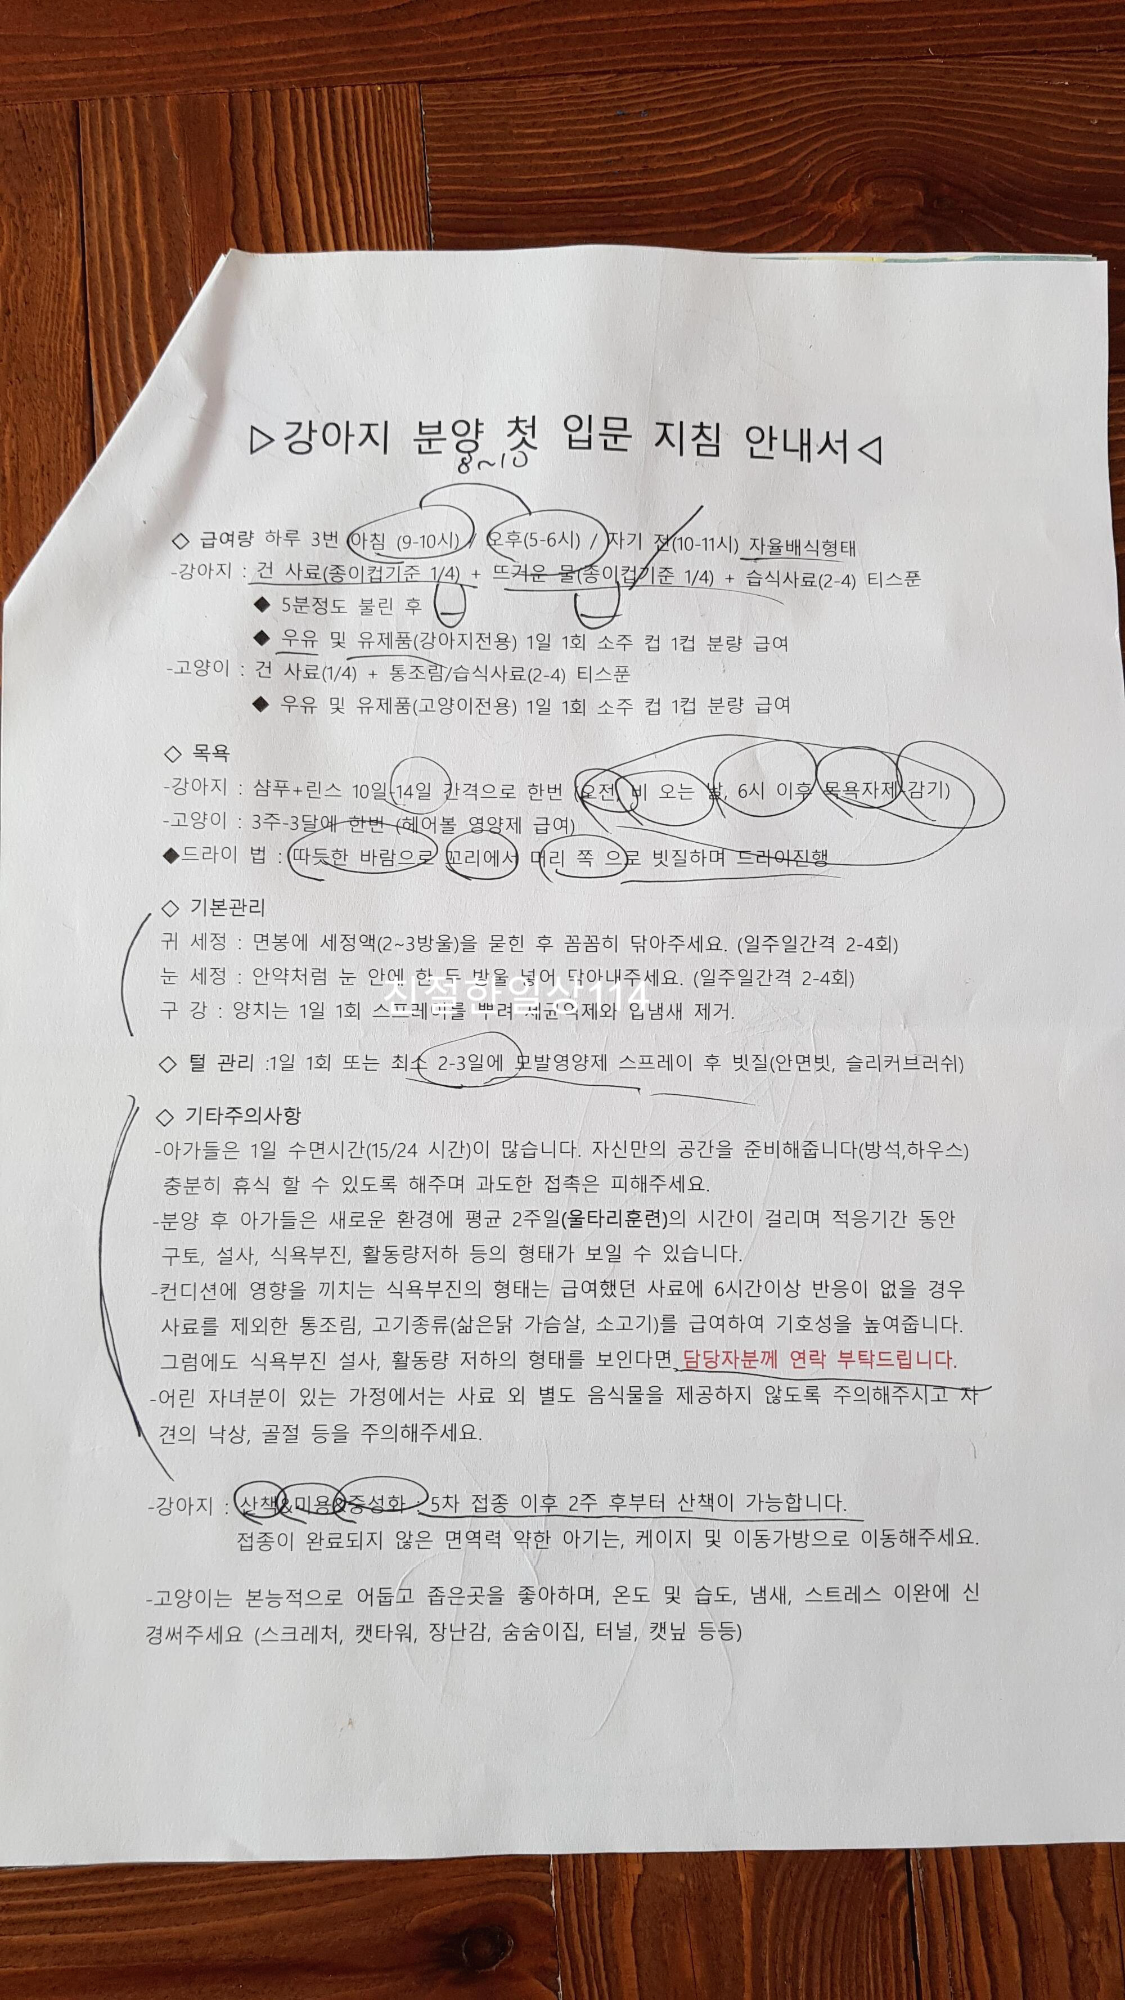 ▷강아지 분양 첫 입문 지침 안내서◁
8~10
◇ 급여량 하루 3번 아침 (9-10시) / 오후(5-6시) / 자기 전(10-11시) 자율배식형태
-강아지 : 건 사료(종이컵기준 1/4) + 뜨거운 물(종이컵기준 1/4) + 습식사료(2-4) 티스푼
◆ 5분정도 불린 후
◆ 우유 및 유제품(강아지전용) 1일 1회 소주 컵 1컵 분량 급여
-고양이 : 건 사료(1/4) + 통조림/습식사료(2-4) 티스푼
◆ 우유 및 유제품(고양이전용) 1일 1회 소주 컵 1컵 분량 급여
◇ 목욕
-강아지 : 샴푸+린스 10일-14일 간격으로 한번 (오전, 비 오는 날, 6시 이후 목욕자제-감기)
-고양이 : 3주-3달에 한번 (헤어볼 영양제 급여)
◆드라이 법 : 따듯한 바람으로 꼬리에서 머리 쪽 으로 빗질하며 드라이진행
◇ 기본관리
귀 세정 : 면봉에 세정액(2~3방울)을 묻힌 후 꼼꼼히 닦아주세요. (일주일간격 2-4회)
눈 세정 : 안약처럼 눈 안에 한 두 방울 넣어 닦아내주세요. (일주일간격 2-4회)
친절한일상114
구 강 : 양치는 1일 1회 스프레이를 뿌려 세균억제와 입냄새 제거.
◇ 털 관리 :1일 1회 또는 최소 2-3일에 모발영양제 스프레이 후 빗질(안면빗, 슬리커브러쉬)
◇ 기타주의사항
-아가들은 1일 수면시간(15/24 시간)이 많습니다. 자신만의 공간을 준비해줍니다(방석,하우스)
충분히 휴식 할 수 있도록 해주며 과도한 접촉은 피해주세요.
-분양 후 아가들은 새로운 환경에 평균 2주일(울타리훈련)의 시간이 걸리며 적응기간 동안
구토, 설사, 식욕부진, 활동량저하 등의 형태가 보일 수 있습니다.
-컨디션에 영향을 끼치는 식욕부진의 형태는 급여했던 사료에 6시간이상 반응이 없을 경우
사료를 제외한 통조림, 고기종류(삶은닭 가슴살, 소고기)를 급여하여 기호성을 높여줍니다.
그럼에도 식욕부진 설사, 활동량 저하의 형태를 보인다면 담당자분께 연락 부탁드립니다.
-어린 자녀분이 있는 가정에서는 사료 외 별도 음식물을 제공하지 않도록 주의해주시고 자
견의 낙상, 골절 등을 주의해주세요.
-강아지 : 산책&미용&중성화 : 5차 접종 이후 2주 후부터 산책이 가능합니다.
접종이 완료되지 않은 면역력 약한 아기는, 케이지 및 이동가방으로 이동해주세요.
-고양이는 본능적으로 어둡고 좁은곳을 좋아하며, 온도 및 습도, 냄새, 스트레스 이완에 신
경써주세요 (스크레처, 캣타워, 장난감, 숨숨이집, 터널, 캣닢 등등)